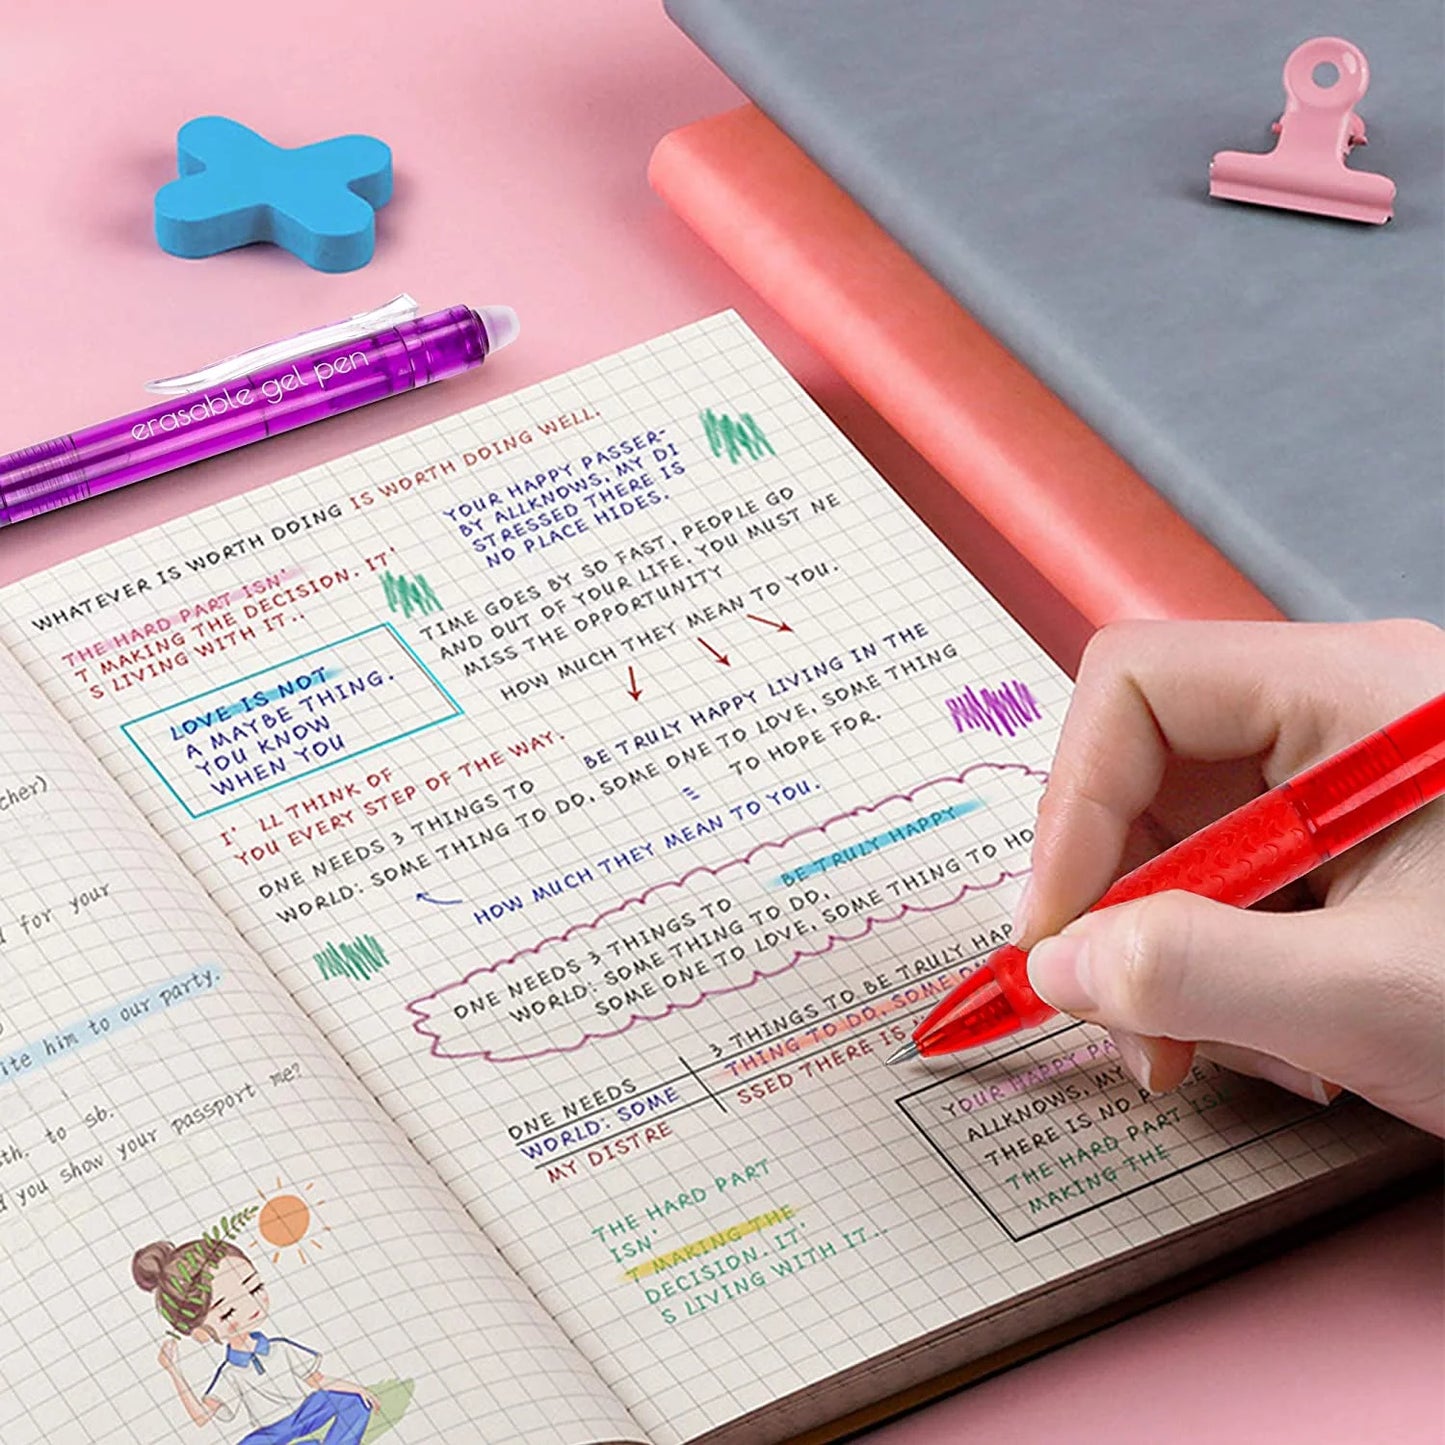 erasable gel pen
WHATEVER IS WORTH DOING IS WORTH DOING WELL.
THE HARD PART ISN'
T MAKING THE DECISION. IT'
S LIVING WITH IT..
YOUR HAPPY PASSER-
BY ALLKNOWS, MY DI
STRESSED THERE IS
NO PLACE HIDES.
TIME GOES BY SO FAST, PEOPLE GO
AND OUT OF YOUR LIFE. YOU MUST NE
MISS THE OPPORTUNITY
HOW MUCH THEY MEAN TO YOU.
LOVE IS NOT
A MAYBE THING.
YOU KNOW
WHEN YOU
I' LL THINK OF
YOU EVERY STEP OF THE WAY.
BE TRULY HAPPY LIVING IN THE
ONE NEEDS 3 THINGS TO
WORLD: SOME THING TO DO, SOME ONE TO LOVE, SOME THING
TO HOPE FOR.
HOW MUCH THEY MEAN TO YOU.
BE TRULY HAPPY
ONE NEEDS 3 THINGS TO
WORLD: SOME THING TO DO,
SOME ONE TO LOVE, SOME THING TO HO
3 THINGS TO BE TRULY HAP
THING TO DO, SOME
SSED THERE IS
ONE NEEDS
WORLD: SOME
MY DISTRE
YOUR HAPPY PA
ALLKNOWS, MY
THERE IS NO
THE HARD PART
MAKING THE
THE HARD PART
ISN'
T MAKING THE
DECISION. IT'
S LIVING WITH IT..
cher)
for your
ite him to our party.
th. to sb.
you show your passport me?